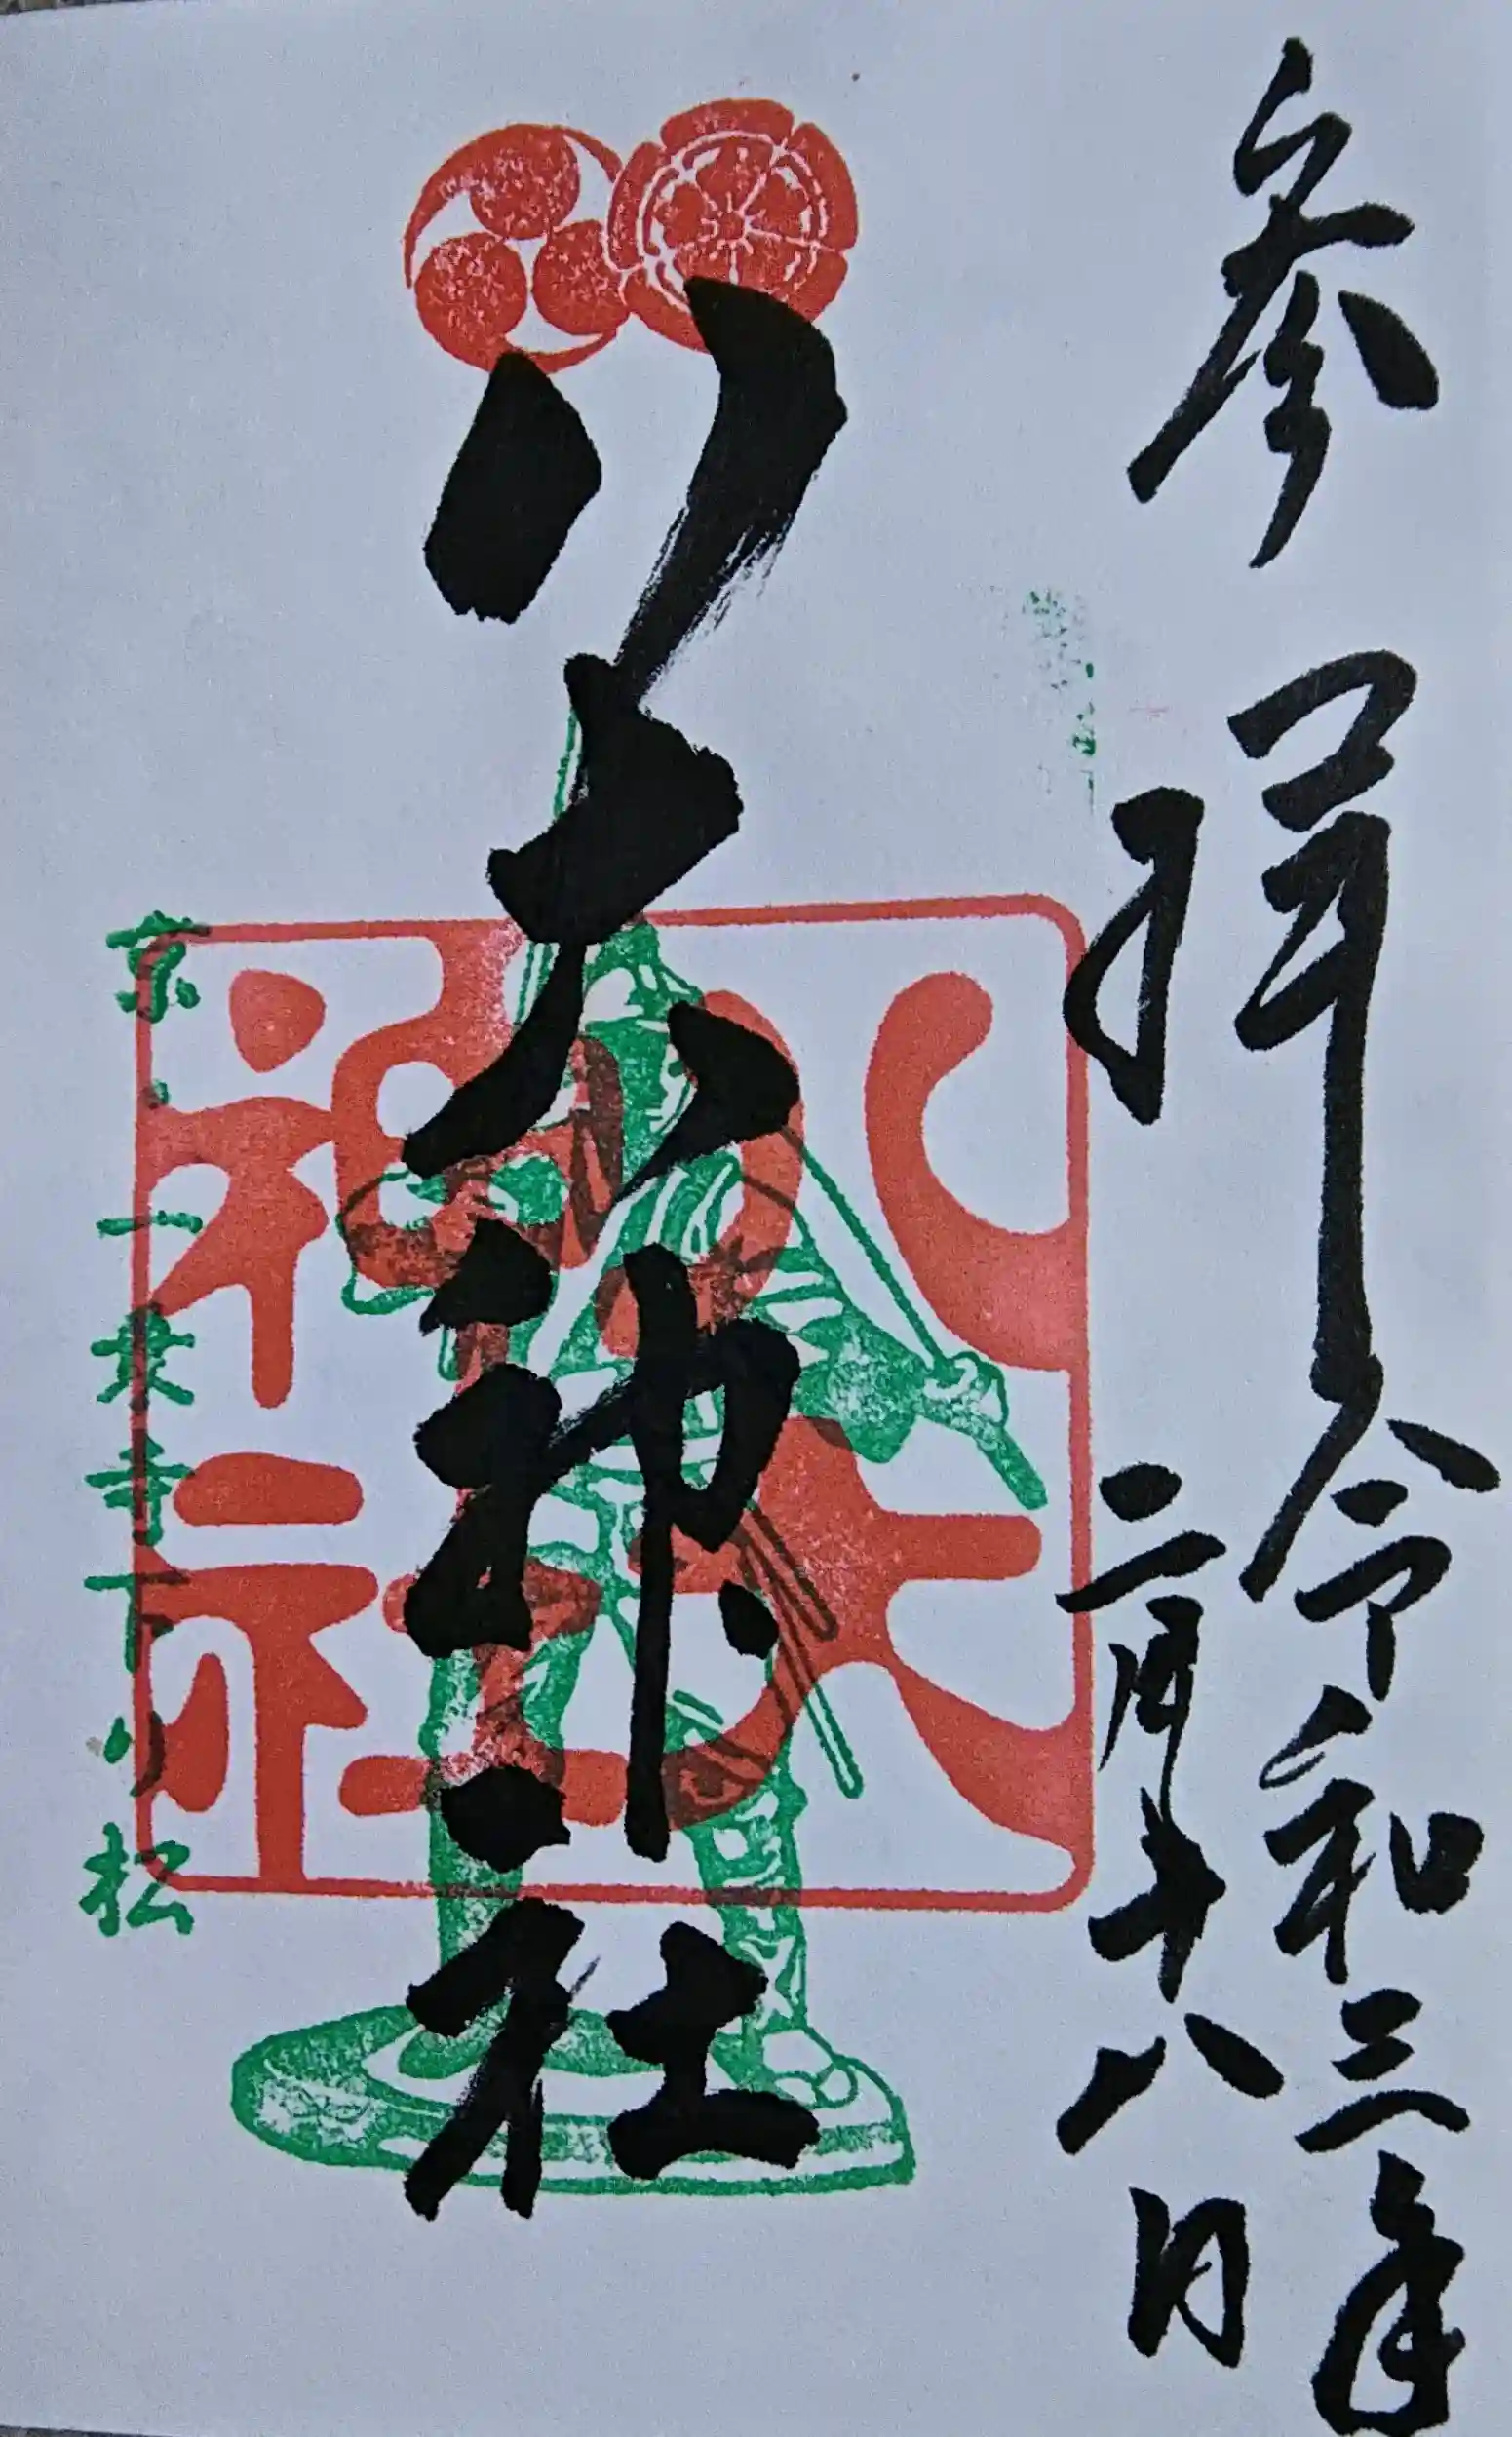 参拝
令和三年
二月十八日
八大神社
八大神社
京・一乗寺下り松